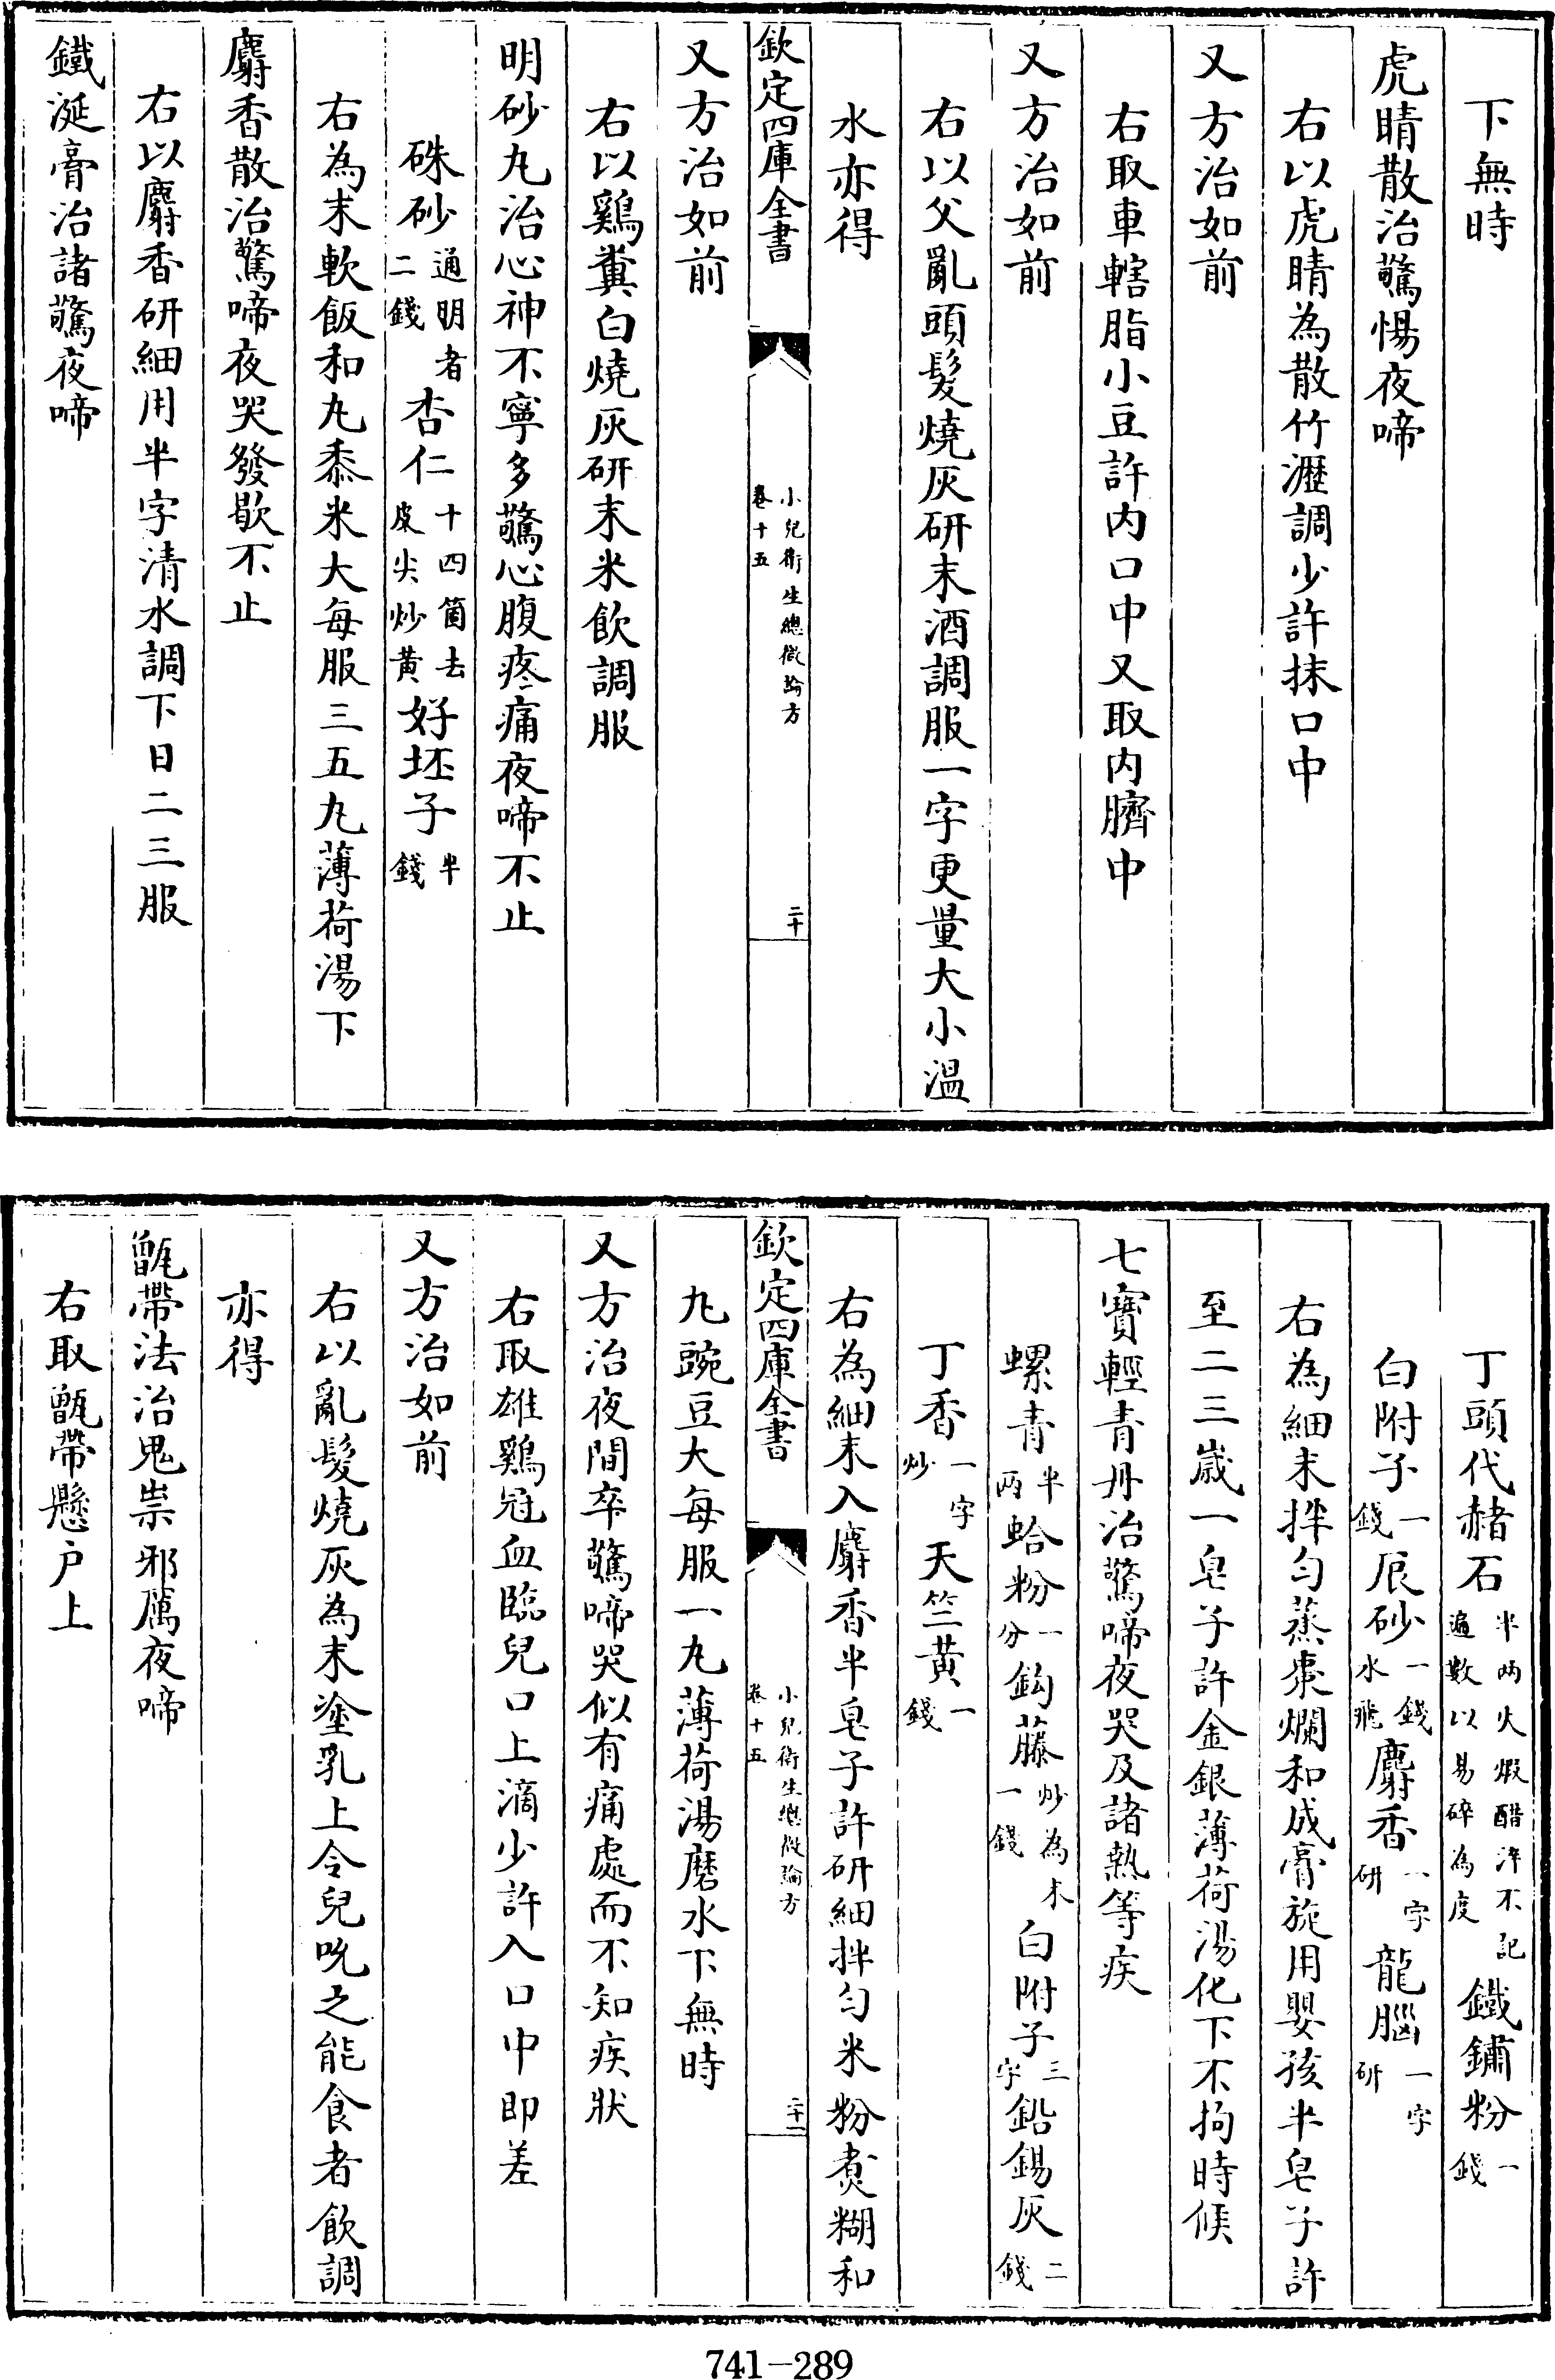 下無時
虎睛散治驚惕夜啼
右以虎睛為散竹瀝調少許抹口中
又方治如前
右取車轄脂小豆許内口中又取内臍中
又方治如前
右以父亂頭髮燒灰研末酒調服一字更量大小溫
水亦得
欽定四庫全書
小兒衛生總微論方
卷十五
二十
又方治如前
右以鷄糞白燒灰研末米飲調服
明砂丸治心神不寧多驚心腹疼痛夜啼不止
硃砂通明者二錢 杏仁十四箇去皮尖炒黄 好坯子半錢
右為末軟飯和丸黍米大每服三五丸薄荷湯下
麝香散治驚啼夜哭發歇不止
右以麝香研細用半字清水調下日二三服
鐵涎膏治諸驚夜啼
丁頭代赭石半兩火煅醋淬不記遍數以易碎為度 鐵鏽粉一錢
白附子一錢 辰砂一錢水飛 麝香一字研 龍腦一字研
右為細末拌勻蒸棗爛和成膏旋用嬰孩半皂子許
至二三歲一皂子許金銀薄荷湯化下不拘時候
七寶輕青丹治驚啼夜哭及諸熱等疾
螺青半兩 蛤粉一分 鈎藤炒為末一錢 白附子三字 鉛錫灰二錢
丁香一字炒 天竺黄一錢
右為細末入麝香半皂子許研細拌勻米粉煑糊和
欽定四庫全書
小兒衛生總微論方
卷十五
二十一
丸豌豆大每服一丸薄荷湯磨水下無時
又方治夜間卒驚啼哭似有痛處而不知疾狀
右取雄鷄冠血臨兒口上滴少許入口中即差
又方治如前
右以亂髮燒灰為末塗乳上令兒吮之能食者飲調
亦得
甑帶法治鬼祟邪厲夜啼
右取甑帶懸户上
741-289